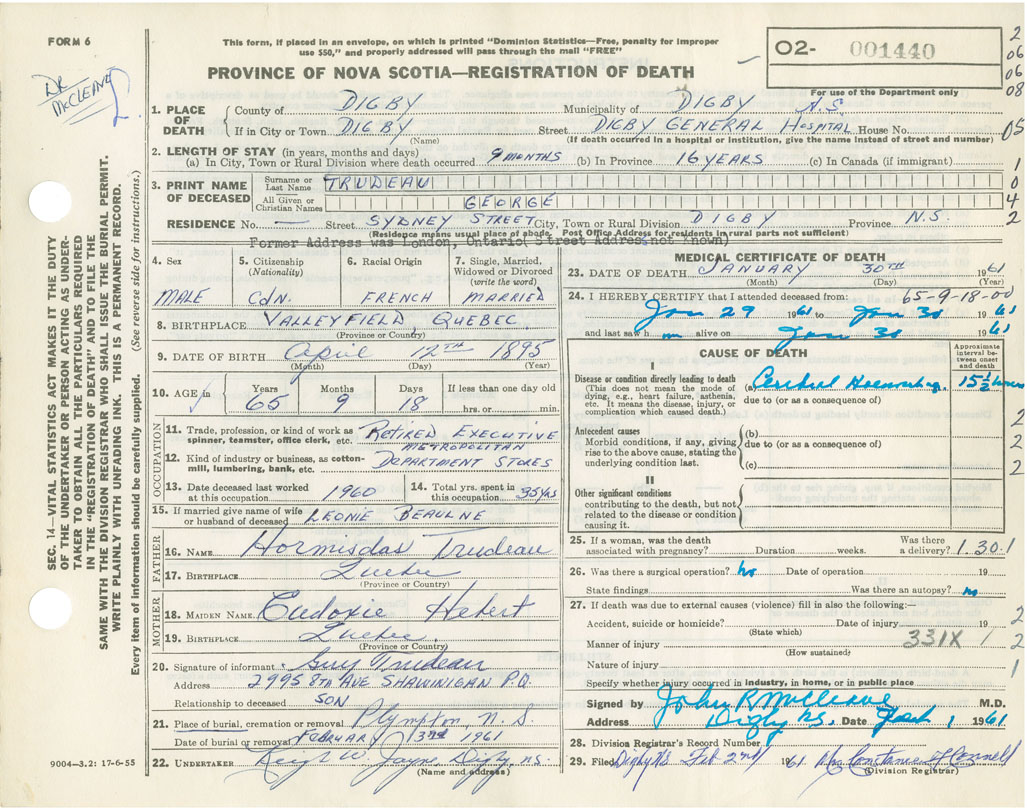 FORM 6
This form, if placed in an envelope, on which is printed "Dominion Statistics—Free, penalty for improper
use $50," and properly addressed will pass through the mail "FREE"
O2- 001440
2
06
06
08
DR
McCLEAVE
PROVINCE OF NOVA SCOTIA—REGISTRATION OF DEATH
For use of the Department only
1. PLACE OF DEATH County of DIGBY Municipality of DIGBY N.S.
If in City or Town DIGBY Street DIGBY GENERAL HOSPITAL House No. 05
(Name) (If death occurred in a hospital or institution, give the name instead of street and number)
2. LENGTH OF STAY (in years, months and days)
(a) In City, Town or Rural Division where death occurred 9 MONTHS (b) In Province 16 YEARS (c) In Canada (if immigrant)
1
0
4
2
3. PRINT NAME OF DECEASED Surname or Last Name TRUDEAU
All Given or Christian Names GEORGE
RESIDENCE No. — Street SYDNEY STREET City, Town or Rural Division DIGBY Province N.S.
(Residence means usual place of abode. Post Office Address for residents in rural parts not sufficient)
Former Address was London, Ontario( Street Address not Known)
4. Sex MALE
5. Citizenship (Nationality) CDN.
6. Racial Origin FRENCH
7. Single, Married, Widowed or Divorced (write the word) MARRIED
8. BIRTHPLACE VALLEYFIELD, QUEBEC
(Province or Country)
9. DATE OF BIRTH April 12TH 1895
(Month) (Day) (Year)
10. AGE Years 65 Months 9 Days 18 If less than one day old hrs. or min.
OCCUPATION
11. Trade, profession, or kind of work as spinner, teamster, office clerk, etc. RETIRED EXECUTIVE
12. Kind of industry or business, as cotton-mill, lumbering, bank, etc. METROPOLITAN DEPARTMENT STORES
13. Date deceased last worked at this occupation 1960
14. Total yrs. spent in this occupation 35 YRS
15. If married give name of wife or husband of deceased LEONIE BEAULNE
FATHER
16. NAME Hormisdas Trudeau
17. BIRTHPLACE Quebec
(Province or Country)
MOTHER
18. MAIDEN NAME Eudoxie Hebert
19. BIRTHPLACE Quebec
(Province or Country)
20. Signature of informant Guy Trudeau
Address 2995 8TH AVE SHAWINIGAN P.Q.
Relationship to deceased SON
21. Place of burial, cremation or removal Plympton, N.S.
Date of burial or removal FEBRUARY 3RD 1961
22. UNDERTAKER W. Jayne, Digby, N.S.
(Name and address)
MEDICAL CERTIFICATE OF DEATH
23. DATE OF DEATH JANUARY 30TH 1961
(Month) (Day) (Year)
24. I HEREBY CERTIFY that I attended deceased from: 65-9-18-00
Jan 29 1961 to Jan 30 1961
and last saw him alive on Jan 30 1961
CAUSE OF DEATH
Approximate interval between onset and death
I
Disease or condition directly leading to death (a) Cerebral Hemorrhage 15½ hours
(This does not mean the mode of dying, e.g., heart failure, asthenia, etc. It means the disease, injury, or complication which caused death.)
due to (or as a consequence of)
Antecedent causes (b)
Morbid conditions, if any, giving rise to the above cause, stating the underlying condition last.
due to (or as a consequence of)
(c)
2
2
2
II
Other significant conditions
contributing to the death, but not related to the disease or condition causing it.
25. If a woman, was the death associated with pregnancy? Duration weeks. Was there a delivery? 1.30.1
26. Was there a surgical operation? no Date of operation 19
State findings Was there an autopsy? no
27. If death was due to external causes (violence) fill in also the following:—
Accident, suicide or homicide? Date of injury 19 2
(State which)
Manner of injury 331X 1 2
(How sustained)
Nature of injury 1
Specify whether injury occurred in industry, in home, or in public place
Signed by John R McCleave M.D.
Address Digby N.S. Date Feb 1 1961
28. Division Registrar's Record Number
29. Filed Digby N.S. Feb 2nd 1961 Mrs Constance F Connell
(Division Registrar)
SEC. 14—VITAL STATISTICS ACT MAKES IT THE DUTY
OF THE UNDERTAKER OR PERSON ACTING AS UNDER-
TAKER TO OBTAIN ALL THE PARTICULARS REQUIRED
IN THE "REGISTRATION OF DEATH" AND TO FILE THE
SAME WITH THE DIVISION REGISTRAR WHO SHALL ISSUE THE BURIAL PERMIT.
WRITE PLAINLY WITH UNFADING INK. THIS IS A PERMANENT RECORD.
Every item of information should be carefully supplied. (See reverse side for instructions.)
9004—3.2: 17-6-55